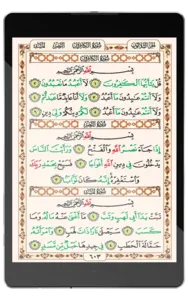 الجزء الثلاثون سورة الكافرون النصر المسد
سورة الكافرون
بِسْمِ اللَّهِ الرَّحْمَٰنِ الرَّحِيمِ
قُلْ يَٰٓأَيُّهَا ٱلْكَٰفِرُونَ ١ لَآ أَعْبُدُ مَا تَعْبُدُونَ ٢
وَلَآ أَنتُمْ عَٰبِدُونَ مَآ أَعْبُدُ ٣ وَلَآ أَنَا۠ عَابِدٌ مَّا عَبَدتُّمْ ٤
وَلَآ أَنتُمْ عَٰبِدُونَ مَآ أَعْبُدُ ٥ لَكُمْ دِينُكُمْ وَلِىَ دِينِ ٦
سورة النصر
بِسْمِ اللَّهِ الرَّحْمَٰنِ الرَّحِيمِ
إِذَا جَآءَ نَصْرُ ٱللَّهِ وَٱلْفَتْحُ ١ وَرَأَيْتَ ٱلنَّاسَ
يَدْخُلُونَ فِى دِينِ ٱللَّهِ أَفْوَاجًا ٢ فَسَبِّحْ بِحَمْدِ رَبِّكَ
وَٱسْتَغْفِرْهُ إِنَّهُۥ كَانَ تَوَّابًۢا ٣
سورة المسد
بِسْمِ اللَّهِ الرَّحْمَٰنِ الرَّحِيمِ
تَبَّتْ يَدَآ أَبِى لَهَبٍ وَتَبَّ ١ مَآ أَغْنَىٰ عَنْهُ مَالُهُۥ وَمَا
كَسَبَ ٢ سَيَصْلَىٰ نَارًا ذَاتَ لَهَبٍ ٣ وَٱمْرَأَتُهُۥ
حَمَّالَةَ ٱلْحَطَبِ ٤ فِى جِيدِهَا حَبْلٌ مِّن مَّسَدٍۭ ٥
٦٠٣